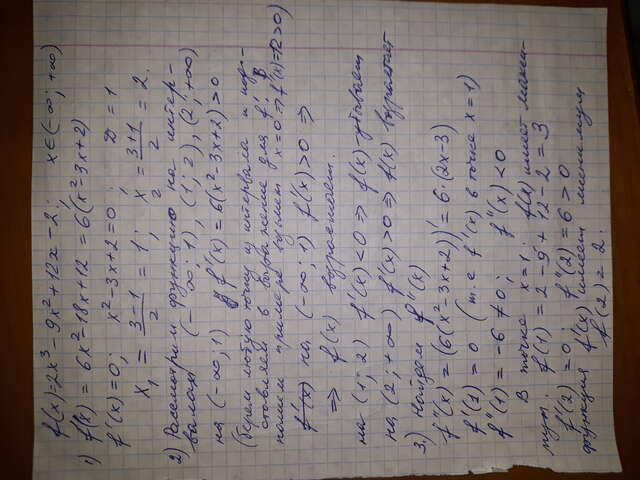 f(x)=2x³ - 9x² + 12x - 2;    x∈(-∞; +∞)
1) f'(x) = 6x²-18x+12 = 6(x²-3x+2)
f'(x)=0;  x²-3x+2=0 ;  D = 1
x₁ = (3-1)/2 = 1;  x₂ = (3+1)/2 = 2.
2) Рассмотрим функцию на интер-
валах (-∞; 1), (1; 2), (2; +∞)
на (-∞; 1) f'(x) = 6(x²-3x+2)>0
(берем любую точку из интервала и под-
ставляем в выражение для f'. В
нашем примере возьмем x=0 ⇒ f'(x)=12>0)
f'(x) на (-∞; 1) f'(x)>0 ⇒
⇒ f(x) возрастает.
на (1; 2) f'(x)<0 ⇒ f(x)-убывает
на (2; +∞) f'(x)>0 ⇒ f(x) возрастает
3.) Найдем f''(x)
f''(x) = (6(x²-3x+2))' = 6·(2x-3)
f'(1) = 0 (т.е f'(x) в точке x=1)
f''(1) = -6 ≠ 0;  f''(x) < 0
В точке x=1. f(x) имеет макси-
мум. f(1) = 2 - 9 + 12 - 2 = 3
f'(2) = 0;  f''(2) = 6 > 0
функция f'(x) имеет минимум
f(2) = 2.